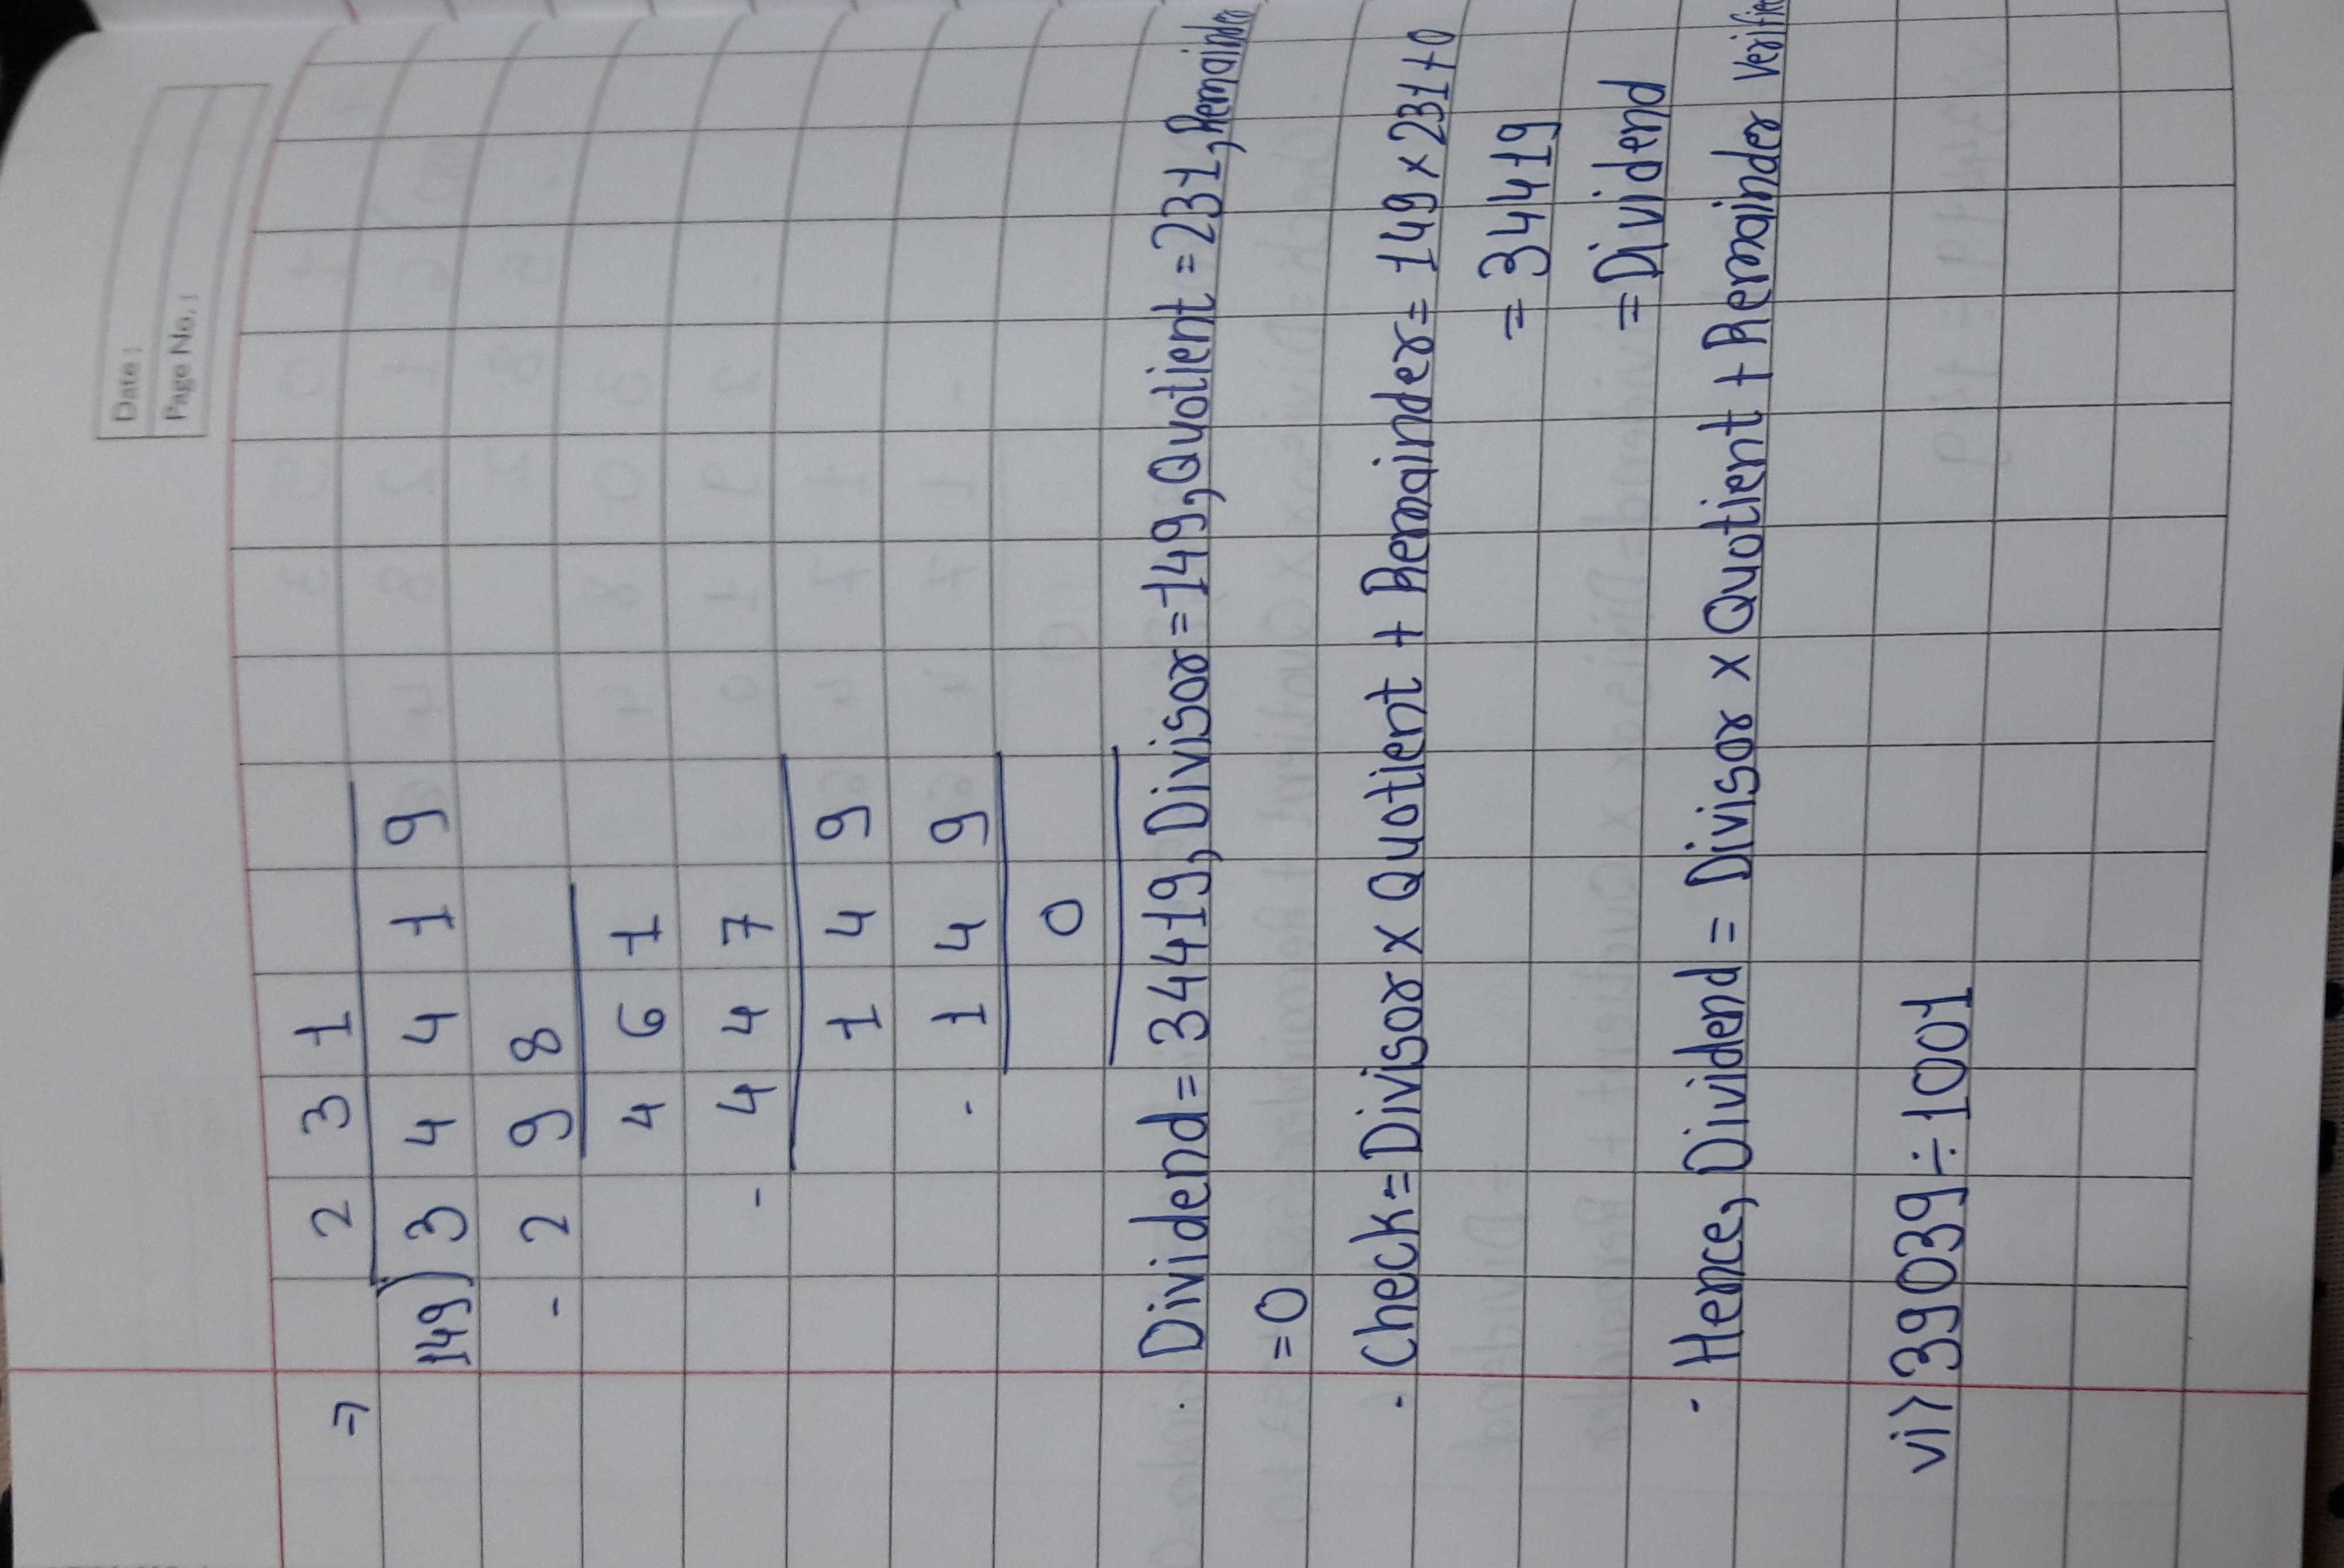 Date :
Page No. :
⇒ 2 3 1
149) 3 4 4 1 9
- 2 9 8
4 6 1
- 4 4 7
1 4 9
- 1 4 9
0
· Dividend = 34419, Divisor = 149, Quotient = 231, Remainder
= 0
· Check = Divisor x Quotient + Remainder = 149 x 231 + 0
= 34419
= Dividend
· Hence, Dividend = Divisor x Quotient + Remainder Verified
vi> 39039 ÷ 1001